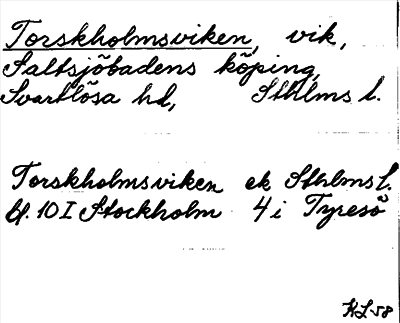 Torskholmsviken, vik,
Saltsjöbadens köping,
Svartlösa hd, Sthlms l.
Torskholmsviken ek Sthlms l.
bl. 10 I Stockholm 4 i Tyresö
KL 58